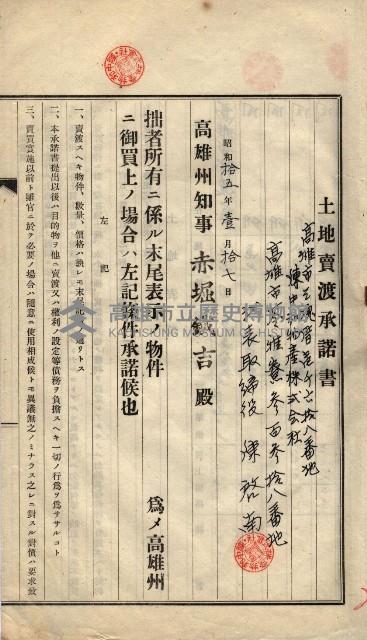 土地賣渡承諾書
高雄市
陳中和物産株式会社
高雄市苓雅寮参百参拾八番地
代表取締役 陳啓南
昭和拾五年壹月拾七日
高雄州知事 赤堀鐵吉 殿
拙者所有ニ係ル末尾表示ノ物件 為メ高雄州
ニ御買上ノ場合ハ左記條件承諾候也
左記
一、賣渡スヘキ物件、數量、價格ハ
二、本承諾書提出以後ハ目的物ヲ他ニ賣渡又ハ權利ノ設定等債務ヲ負擔スヘキ一切ノ行為ヲ為ササルコト
三、賣買實施以前ト雖官ニ於テ必要ノ場合ハ隨意ニ使用相成候トモ異議無之ノミナラス之レニ對スル對價ハ要求致
高雄市立歷史博物館
KAOHSIUNG MUSEUM OF HISTORY